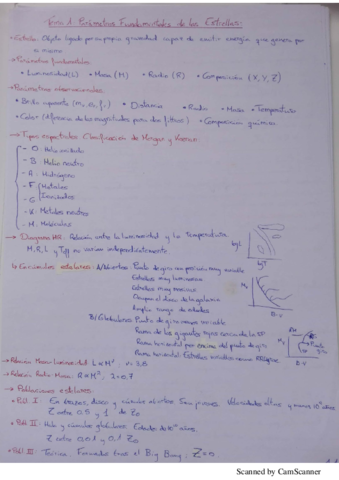 Tema 1: Parámetros Fundamentales de las Estrellas:
• Estrella: Objeto ligado por su propia gravedad capaz de emitir energía que genera por
si mismo
→ Parámetros fundamentales
• Luminosidad (L) • Masa (M) • Radio (R) • Composición (X, Y, Z)
→ Parámetros observacionales:
• Brillo aparente • Distancia • Radio • Masa • Temperatura
• Color (diferencia de las magnitudes para dos filtros) • Composición química
→ Tipos espectrales: Clasificación de Morgan y Keenan:
- O Helio ionizado
- B Helio neutro
- A Hidrógeno
- F Metales
- G Ionizados
- K Metales neutros
- M Moléculas
→ Diagrama HR: Relación entre la luminosidad y la Temperatura
M, R, L y Teff no varían independientemente
lg L
lg T
↳ Cúmulos estelares: A/Abiertos: Punto de giro en posición muy variable
Estrellas muy luminosas
Estrellas muy masivas
Ocupan el disco de la galaxia
Amplio rango de edades
B-V
B/Globulares: Punto de giro menos variable
Rama de las gigantes rojas cerca de la SP
Rama horizontal por encima del punto de giro
Rama horizontal: Estrellas variables como RR Lyrae
B-V
→ Relación Masa Luminosidad: L ∝ M
→ Relación Radio Masa: R ∝ M
→ Poblaciones estelares
• Pobl. I: En brazos, disco y cúmulos abiertos. Son jóvenes. Velocidades altas y menos 10
Z entre 0.5 y 1 de Z⊙
• Pobl. II: Halo y cúmulos globulares. Edades de 10 años.
Z entre 0.01 y 0.1 Z⊙
• Pobl. III: Teórica. Formadas tras el Big Bang; Z=0.
Scanned by CamScanner